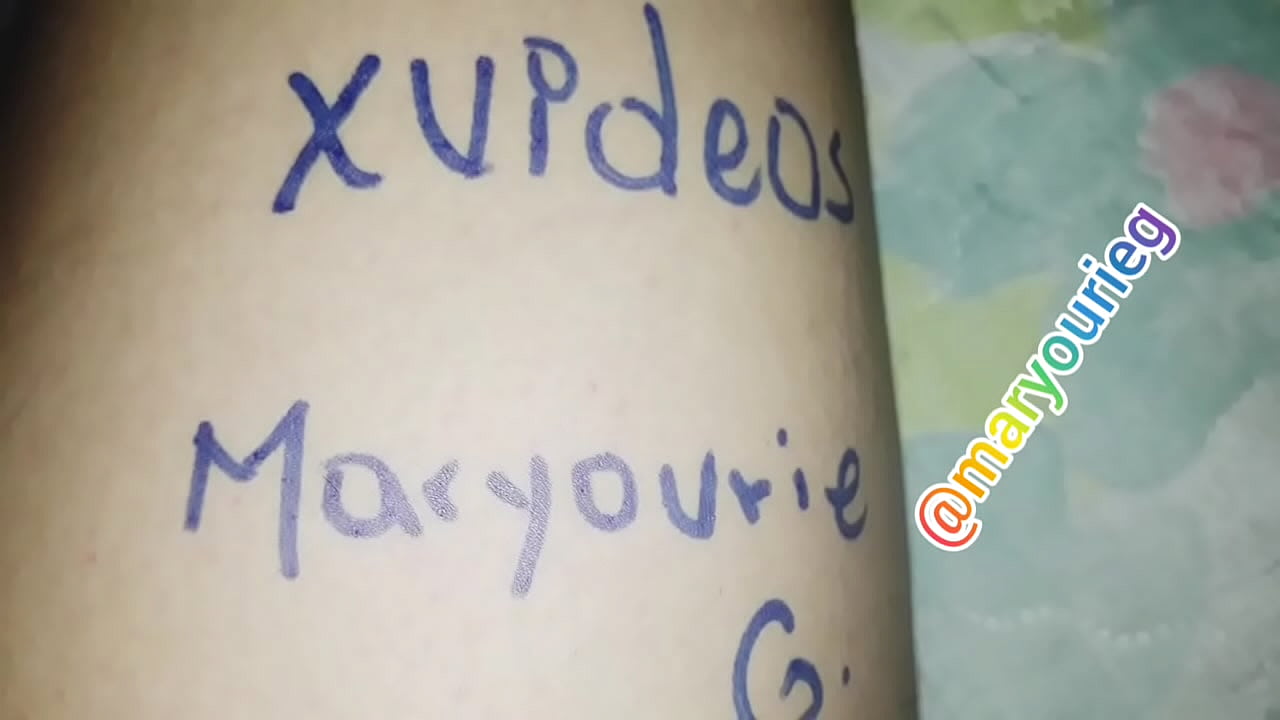 xvideos
Maryourie
G.
@maryourieg